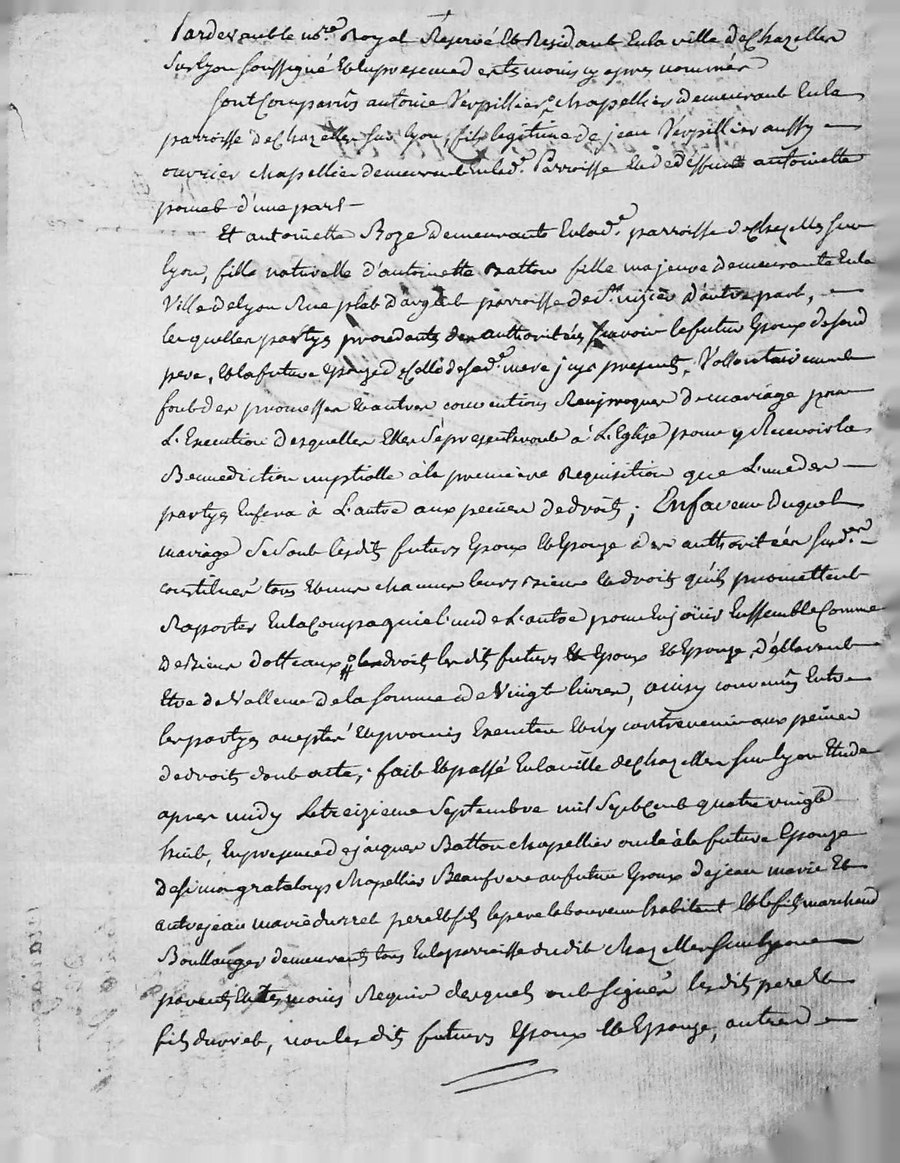 Pardevant le no.re Royal Reservé Et Residant En la ville de Chazelles
sur lyon soussigné Et En presence des témoins cy apres nommés
sont Comparûs antoine Verpillier chapellier demeurant En la
parroisse de Chazelles sur lyon, fils legitime de jean Verpillier aussy
ouvrier chapellier demeurant En lad.e Parroisse Et de deffunte antoinette
poncet d'une part
Et antoinette Roze demeurante En lad.e parroisse de Chazelles sur
lyon, fille naturelle d'antoinette Batton fille majeure demeurante En la
Ville de lyon Rue plat d'argent parroisse de St nizier d'autre part,
lesquelles partyes procedants des authorités sçavoir le futur Epoux de sond
pere, Et la future Epouze de Celle de sad.e mere jcy present, Vollontairement
font des promesses Et autres conventions Reciproques de mariage pour
L'Execution desquelles Elles se presenteront à L'Eglise pour y Recevoir la
Benediction nuptialle à la premiere Requisition que L'une des
partyes En fera à L'autre aux peines de droits; En faveur duquel
mariage se sont lesdits futurs Epoux Et Epouze de authorités susd.es
constitués tous Et uns chacuns leurs Biens Et droits qu'ils promettent
Raporter En la Compagnie l'un de L'autre pour En joüir Ensemble Comme
de Biens dotteaux lesdroits lesdits futurs Epoux Et Epouze, d'éllevent
Etre de Valleur de la somme de Vingt livres, ainsy convenûs Entre
les partyes accepté Et promis Executer Et n'y contrevenir aux peines
de droits dont acte; fait Et passé En la ville de Chazelles sur lyon Etude
apres midy Le treizieme Septembre mil Sept Cent quatre vingt
huit, En presence de jacques Batton chapellier oncle à la future Epouze
de simon grataloup Chapellier Beaufrere au futur Epoux de jean marie Et
autre jean marie durret pere Et fils le pere laboureur habitant Et le fils marchand
Boullanger demeurants tous En la parroisse dudit Chazelles sur lyon
parents Et témoins Requis desquels ont signés lesdits pere Et
fils durret, non lesdits futurs Epoux Et Epouze, autres